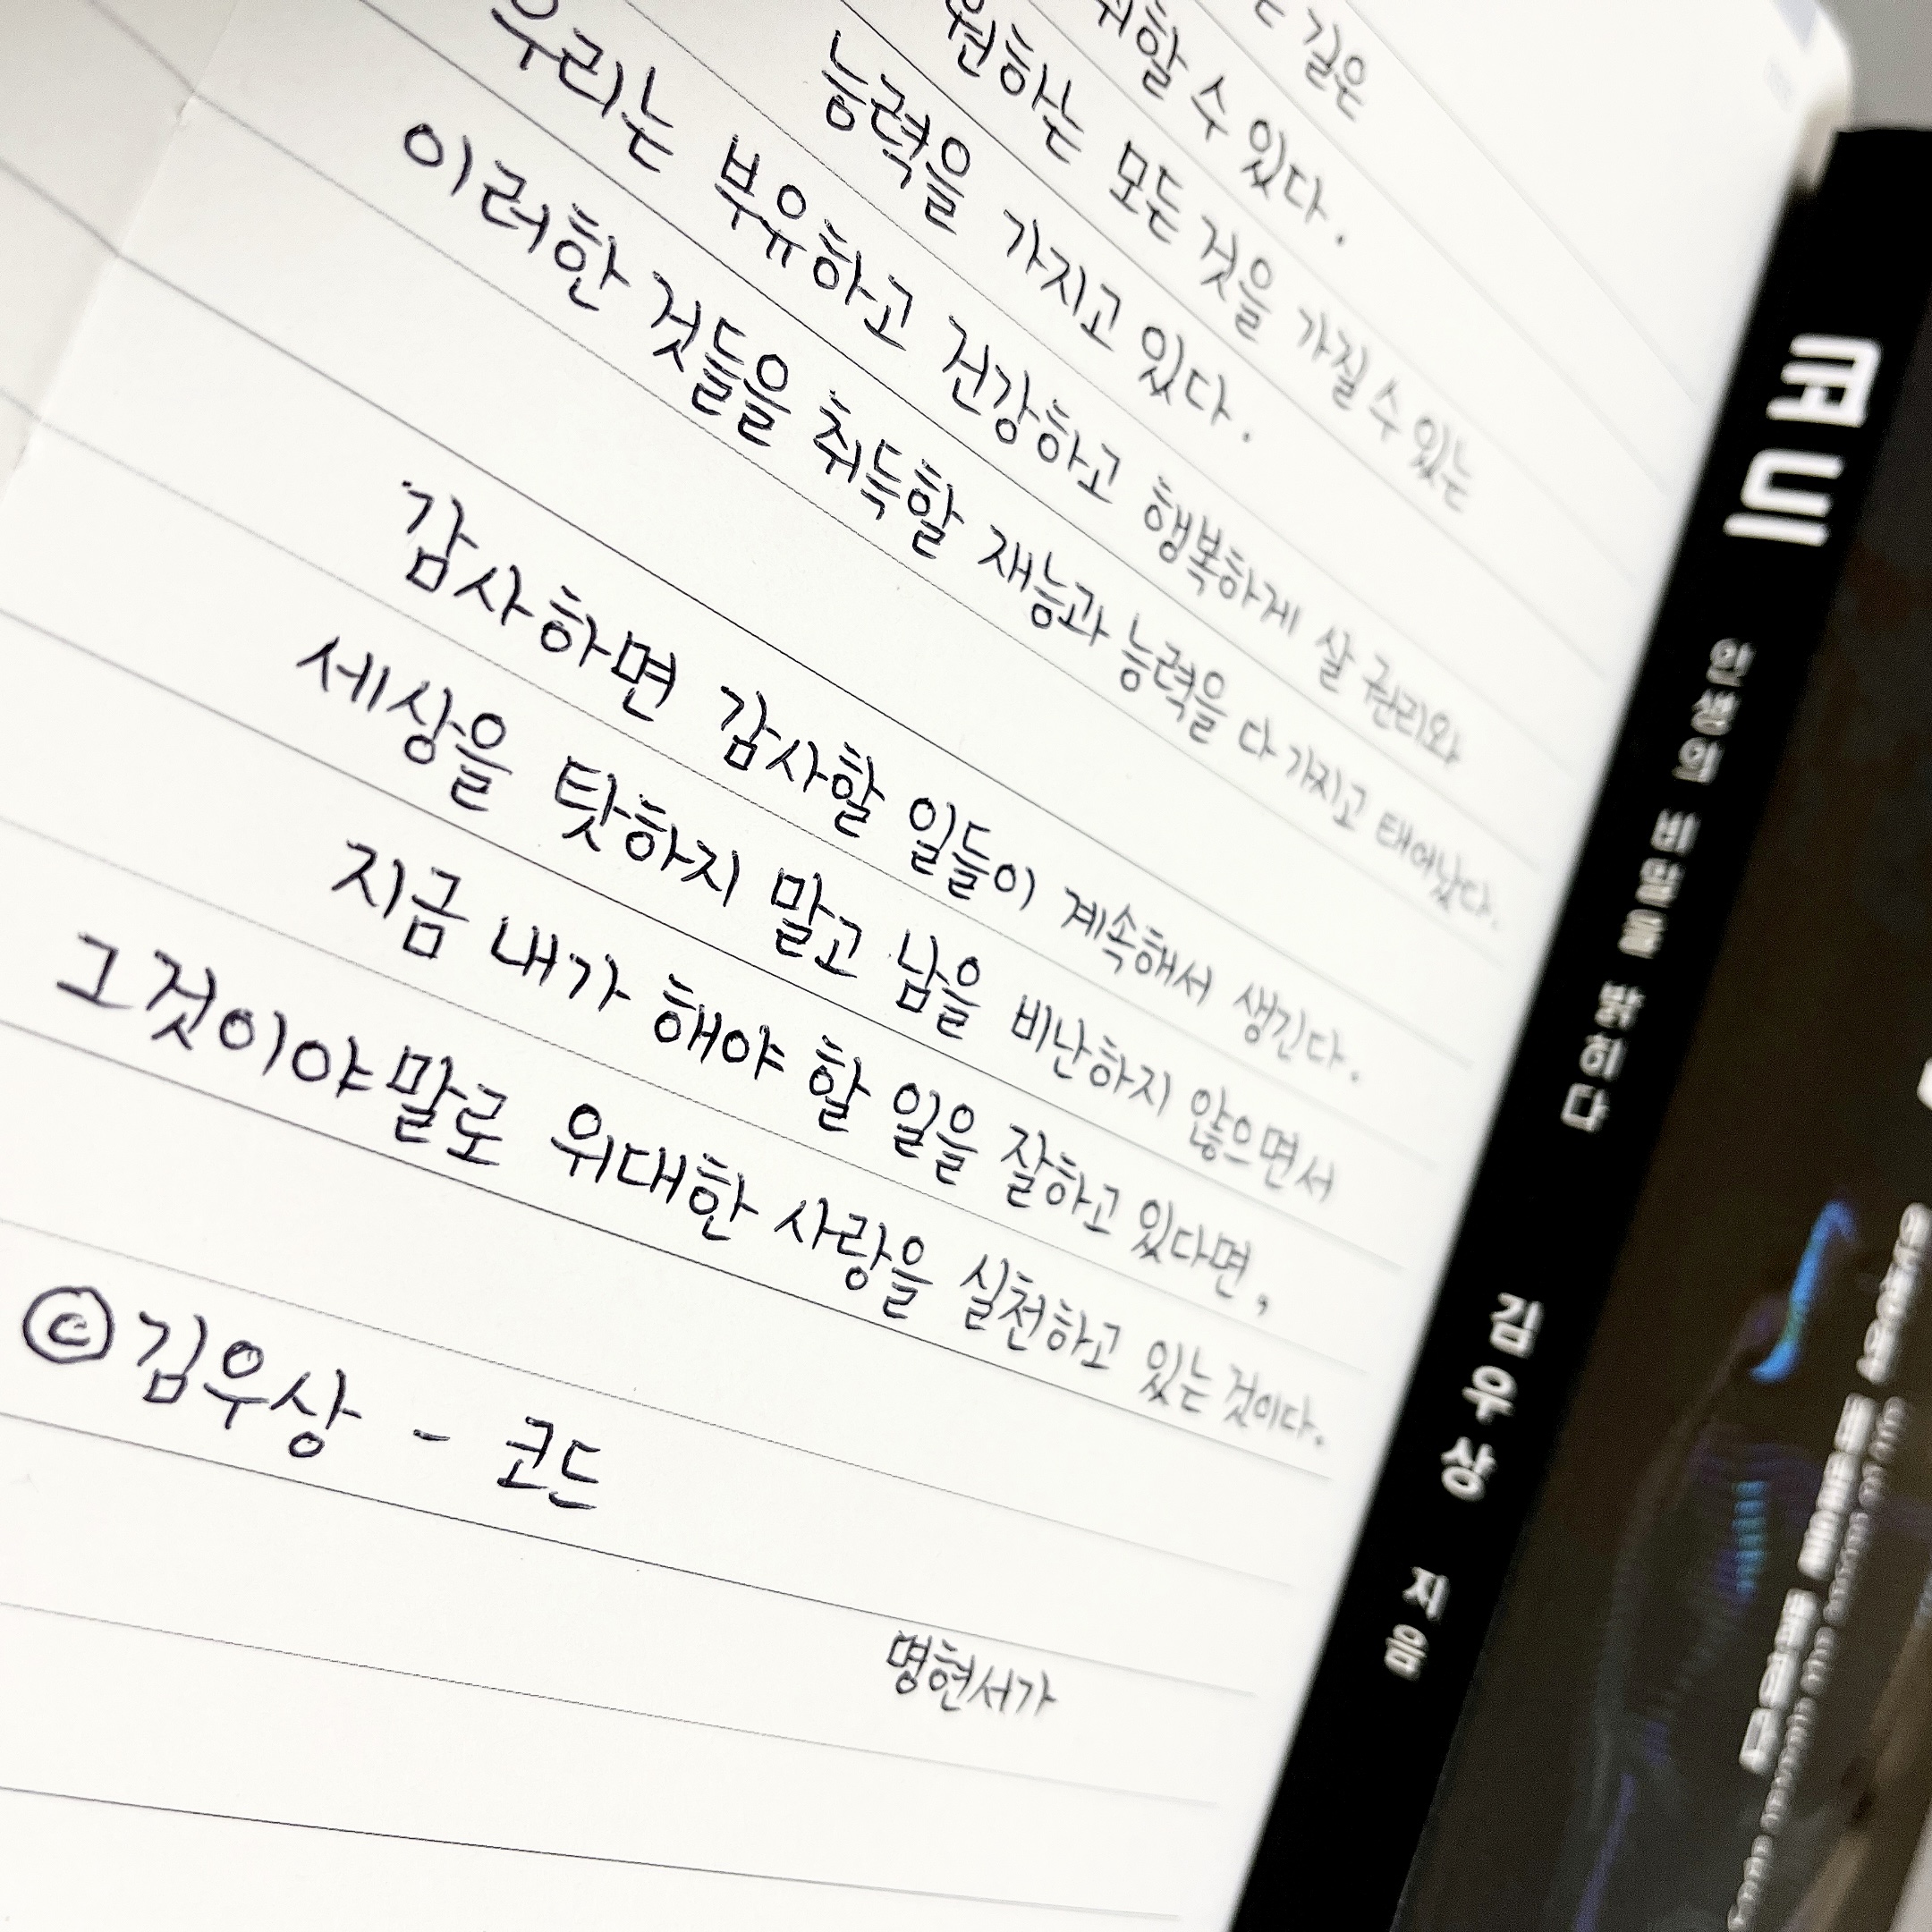 깊은
취할 수 있다.
원하는 모든 것을 가질 수 있는
능력을 가지고 있다.
우리는 부유하고 건강하고 행복하게 살 권리와
이러한 것들을 취득할 재능과 능력을 다 가지고 태어났다.
감사하면 감사할 일들이 계속해서 생긴다.
세상을 탓하지 말고 남을 비난하지 않으면서
지금 내가 해야 할 일을 잘하고 있다면,
그것이야말로 위대한 사랑을 실천하고 있는 것이다.
©김우상 - 코드
명현서가
코드 인생의 비밀을 밝히다 김우상 지음